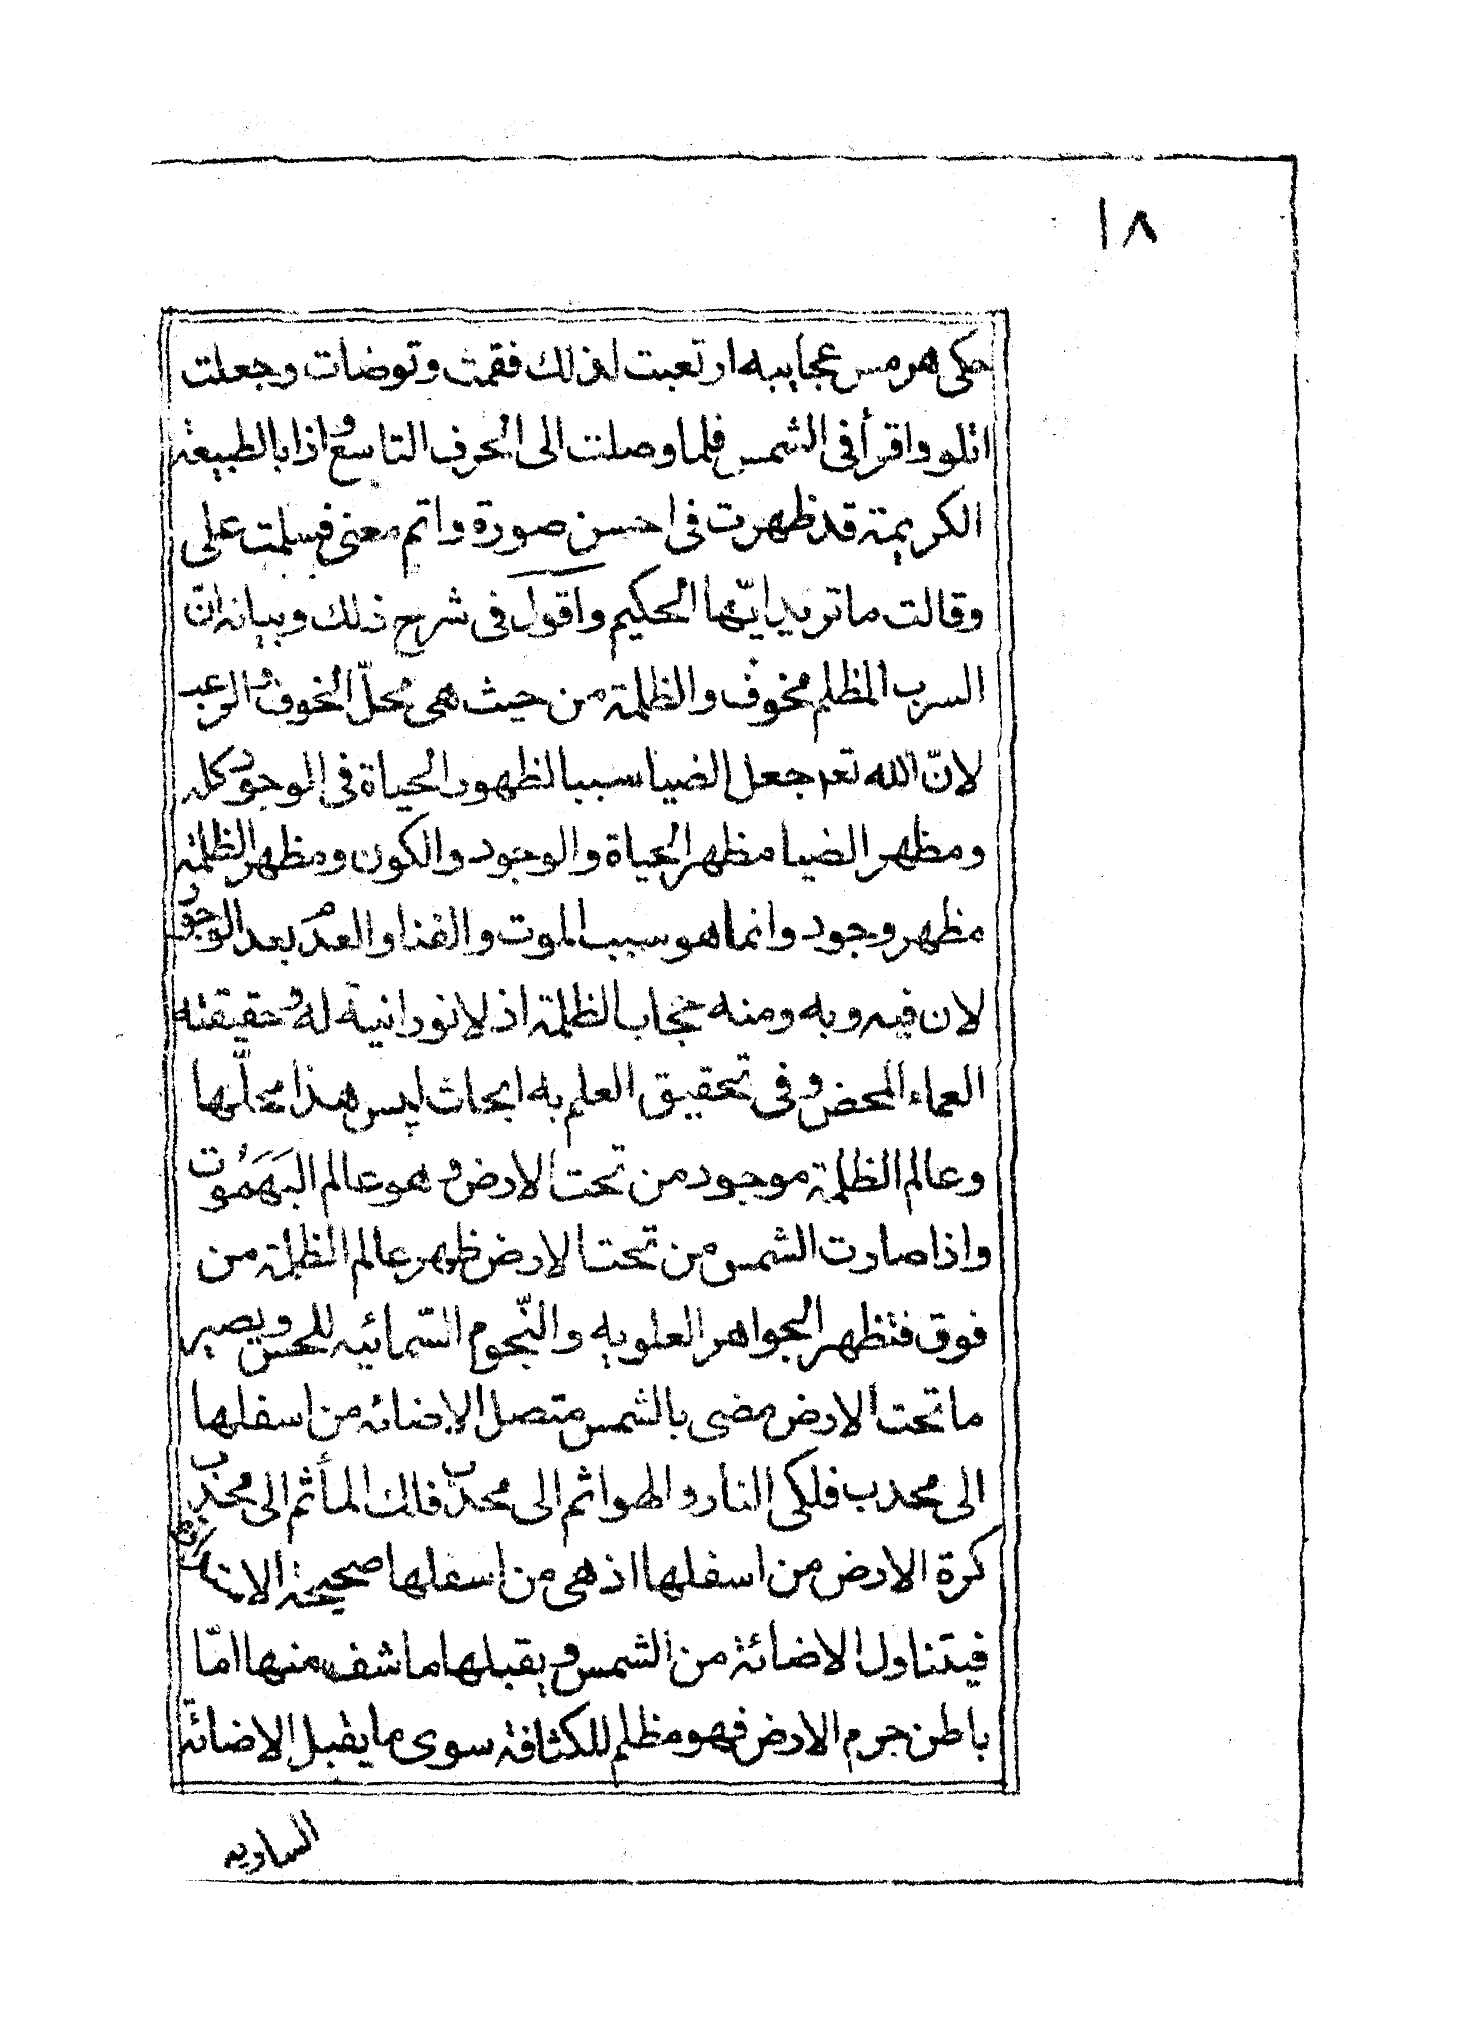 ١٨
حكى هرمس عجايبه ارتعبت لذلك فقمت وتوضات وجعلت
اتلو واقرأ فى الشمس فلما وصلت الى الحرف التاسع و اذا بالطبيعة
الكريمة قد ظهرت فى احسن صورة واتم معنى فسلمت على
وقالت ما تريد ايّها الحكيم واقول فى شرح ذلك وبيانه انّ
السرب المظلم مخوف والظلمة من حيث هى محلّ الخوف والرعب
لانّ الله تعه جعل الضيا سببا لظهور الحياة فى الوجود كله
ومظهر الضيا مظهر الحياة والوجود والكون ومظهر الظلمة
مظهر وجود وانما هو سبب الموت والفنا والعدم بعد الوجود
لان فيه وبه ومنه حجاب الظلمة اذ لا نورانية له وحقيقته
العماء المحض وفى تحقيق العلم به ابحاث ليس هذا محلّها
وعالم الظلمة موجود من تحت الارض وهو عالم البَهَمُوت
واذا صارت الشمس من تحت الارض ظهر عالم الظلمة من
فوق فتظهر الجواهر العلويه والنّجوم السّمائيه للحس ويصير
ما تحت الارض مضى بالشمس متصل الاضائه من اسفلها
الى محدب فلكى النار والهوا ثم الى محدب فلك المأ ثم الى محدب
كرة الارض من اسفلها اذ هى من اسفلها صحيحة
فيتناول الاضائة من الشمس ويقبلها ما شف منها امّا
باطن جرم الارض فهو مظلم للكثافة سوى ما يقبل الاضائة
الساريه